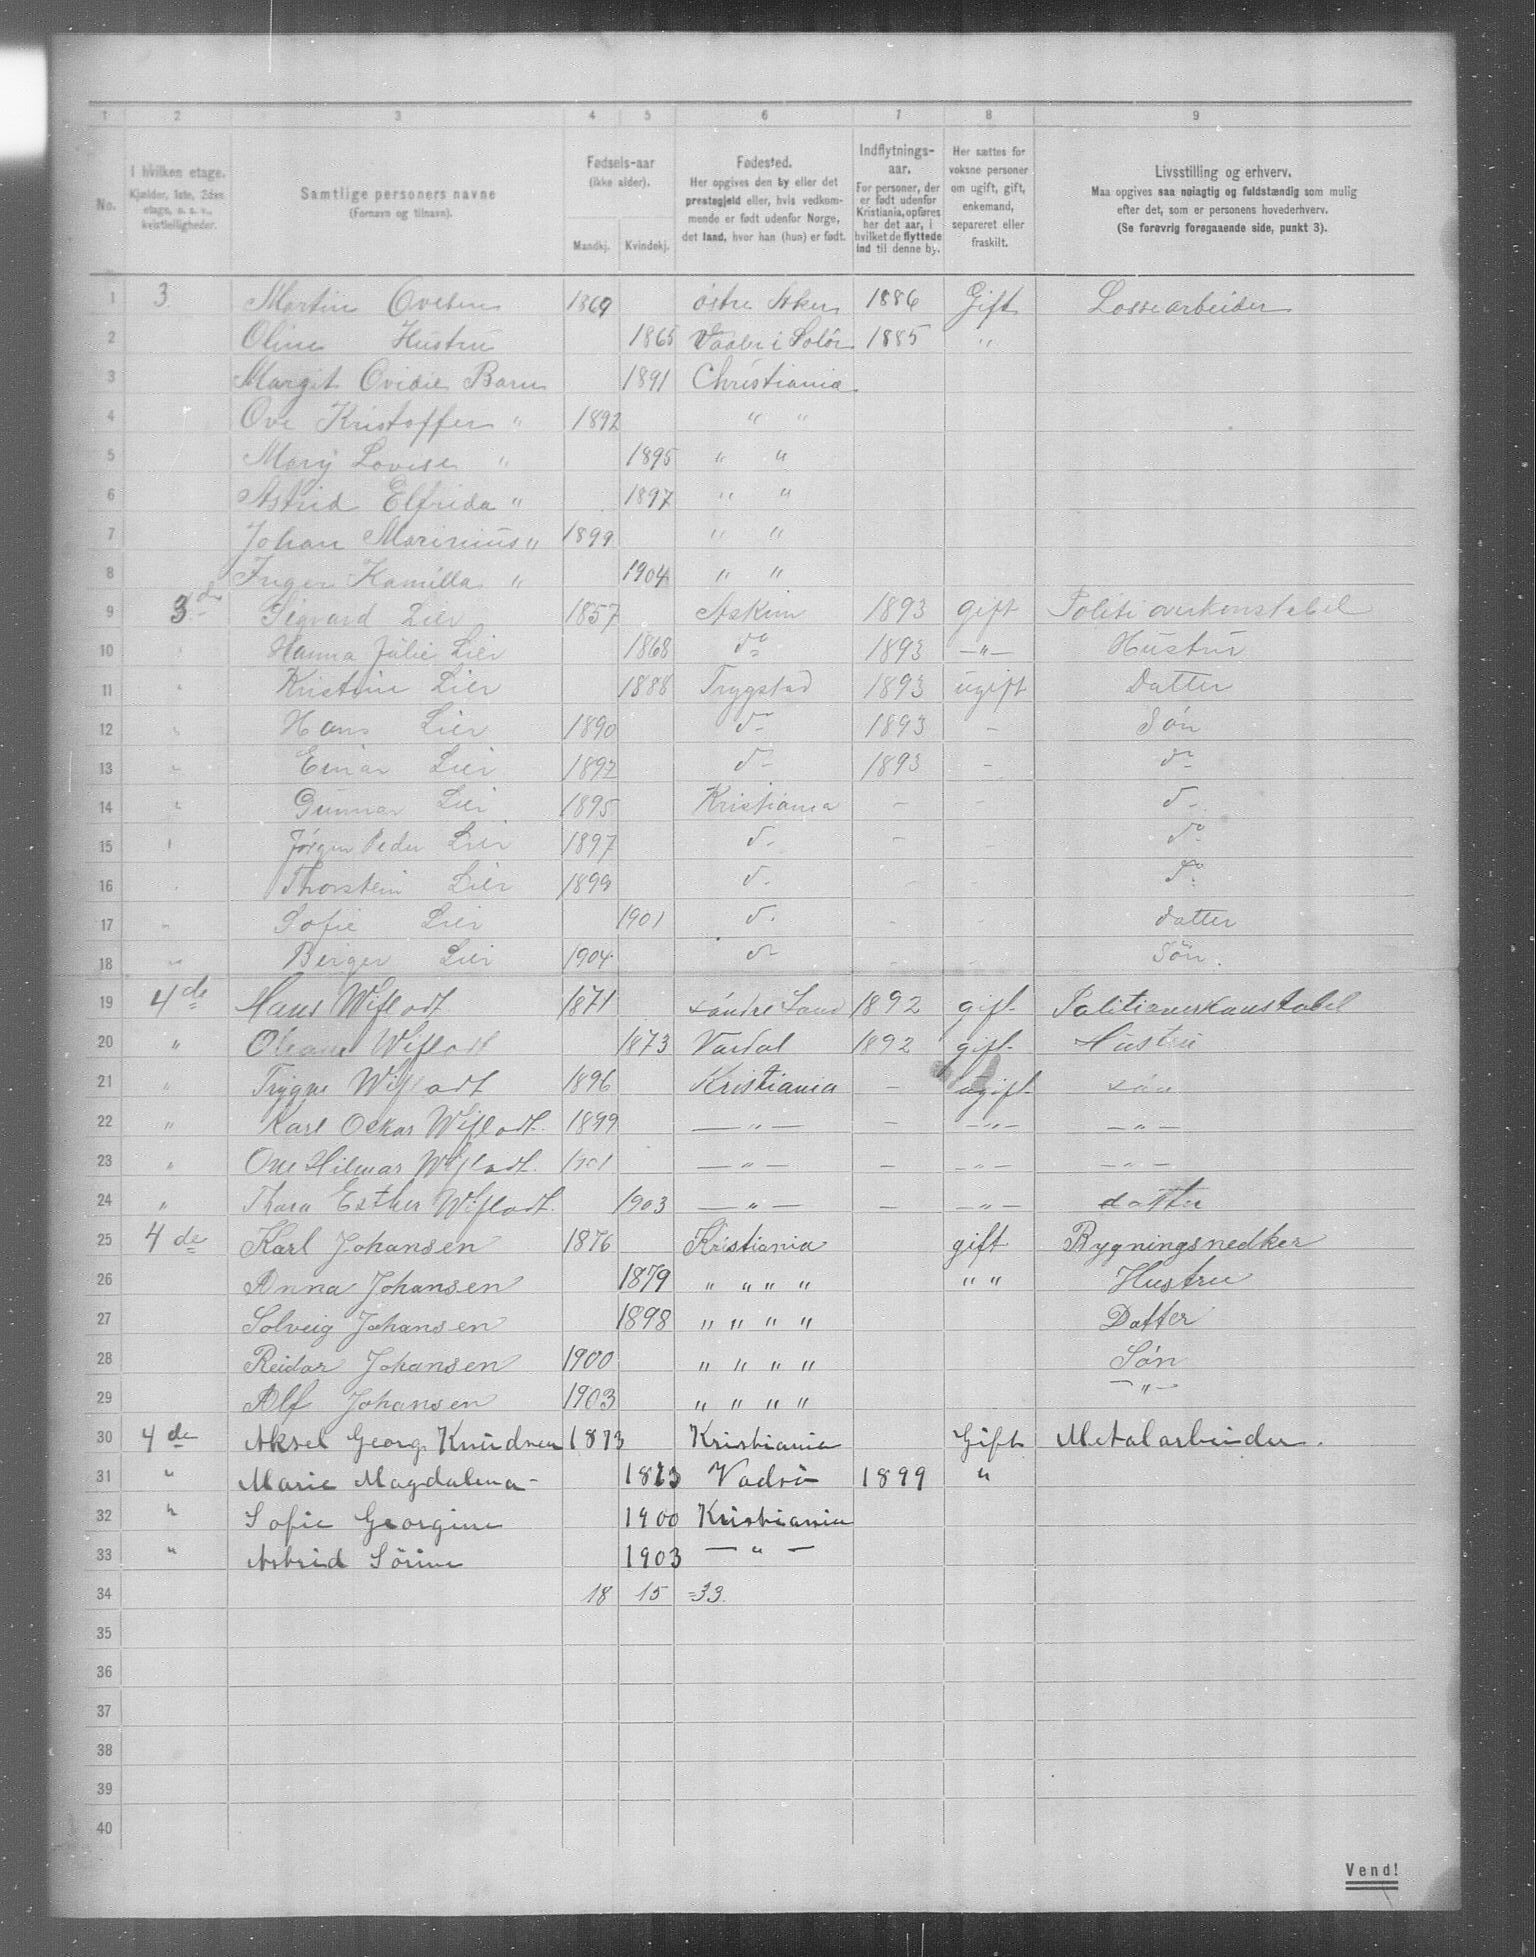 1 2 3 4 5 6 7 8 9
No. I hvilken etage. Kjælder, 1ste, 2den etage, o. s. v., kvistleiligheder. Samtlige personers navne (Fornavn og tilnavn). Fødsels-aar (ikke alder). Mandkj. Kvindekj. Fødested. Her opgives den by eller det prestegjeld eller, hvis vedkommende er født udenfor Norge, det land, hvor han (hun) er født. Indflytnings-aar. For personer, der er født udenfor Kristiania, opføres her det aar, i hvilket de flyttede ind til denne by. Her sættes for voksne personer om ugift, gift, enkemand, separeret eller fraskilt. Livsstilling og erhverv. Maa opgives saa nøiagtig og fuldstændig som mulig efter det, som er personens hovederhverv. (Se forøvrig foregaaende side, punkt 3).
1 3 Martin Ovesen 1869 østre Aker 1886 Gift Lossearbeider
2 Oline Hustru 1865 Vaaler i Solør 1885 "
3 Margit Ovidie Barn 1891 Christiania
4 Ove Kristoffer " 1892 " "
5 Mary Lovise " 1895 " "
6 Astrid Elfrida " 1897 " "
7 Johan Marinius " 1899 " "
8 Inger Kamilla " 1904 " "
9 3de Sigvard Lier 1857 Askim 1893 gift Politioverkonstabel
10 " Hanna Julie Lier 1868 do 1893 -"- Hustru
11 " Kristine Lier 1888 Trygstad 1893 ugift Datter
12 " Hans Lier 1890 do 1893 - Søn
13 " Einar Lier 1892 do 1893 - do
14 " Gunnar Lier 1895 Kristiania - - do
15 " Jørgen Peder Lier 1897 do - - do
16 " Thorstein Lier 1899 do - - do
17 " Sofie Lier 1901 do - - datter
18 " Birger Lier 1904 do - - Søn.
19 4de Hans Wiflodt 1871 søndre Land 1892 gift Politioverkonstabel
20 " Oleane Wiflodt 1873 Vardal 1892 gift Hustru
21 " Trygve Wiflodt 1896 Kristiania - ugift søn
22 " Karl Oskar Wiflodt. 1899 -"- - -"- -"-
23 " Ove Hilmar Wiflodt. 1901 -"- - -"- -"-
24 " Thora Esther Wiflodt. 1903 -"- - -"- datter
25 4de Karl Johansen 1876 Kristiania gift Bygningsnedker
26 Anna Johansen 1879 " " " " " " Hustru
27 Solveig Johansen 1898 " " " " Datter
28 Reidar Johansen 1900 " " " " Søn
29 Alf Johansen 1903 " " " " -"-
30 4de Aksel Georg Knudsen 1873 Kristiania Gift Metalarbeider.
31 " Marie Magdalena - 1873 Vadsø 1899 "
32 " Sofie Georgine 1900 Kristiania
33 " Astrid Sørine 1903 -"-
34 18 15 =33.
35
36
37
38
39
40
Vend!